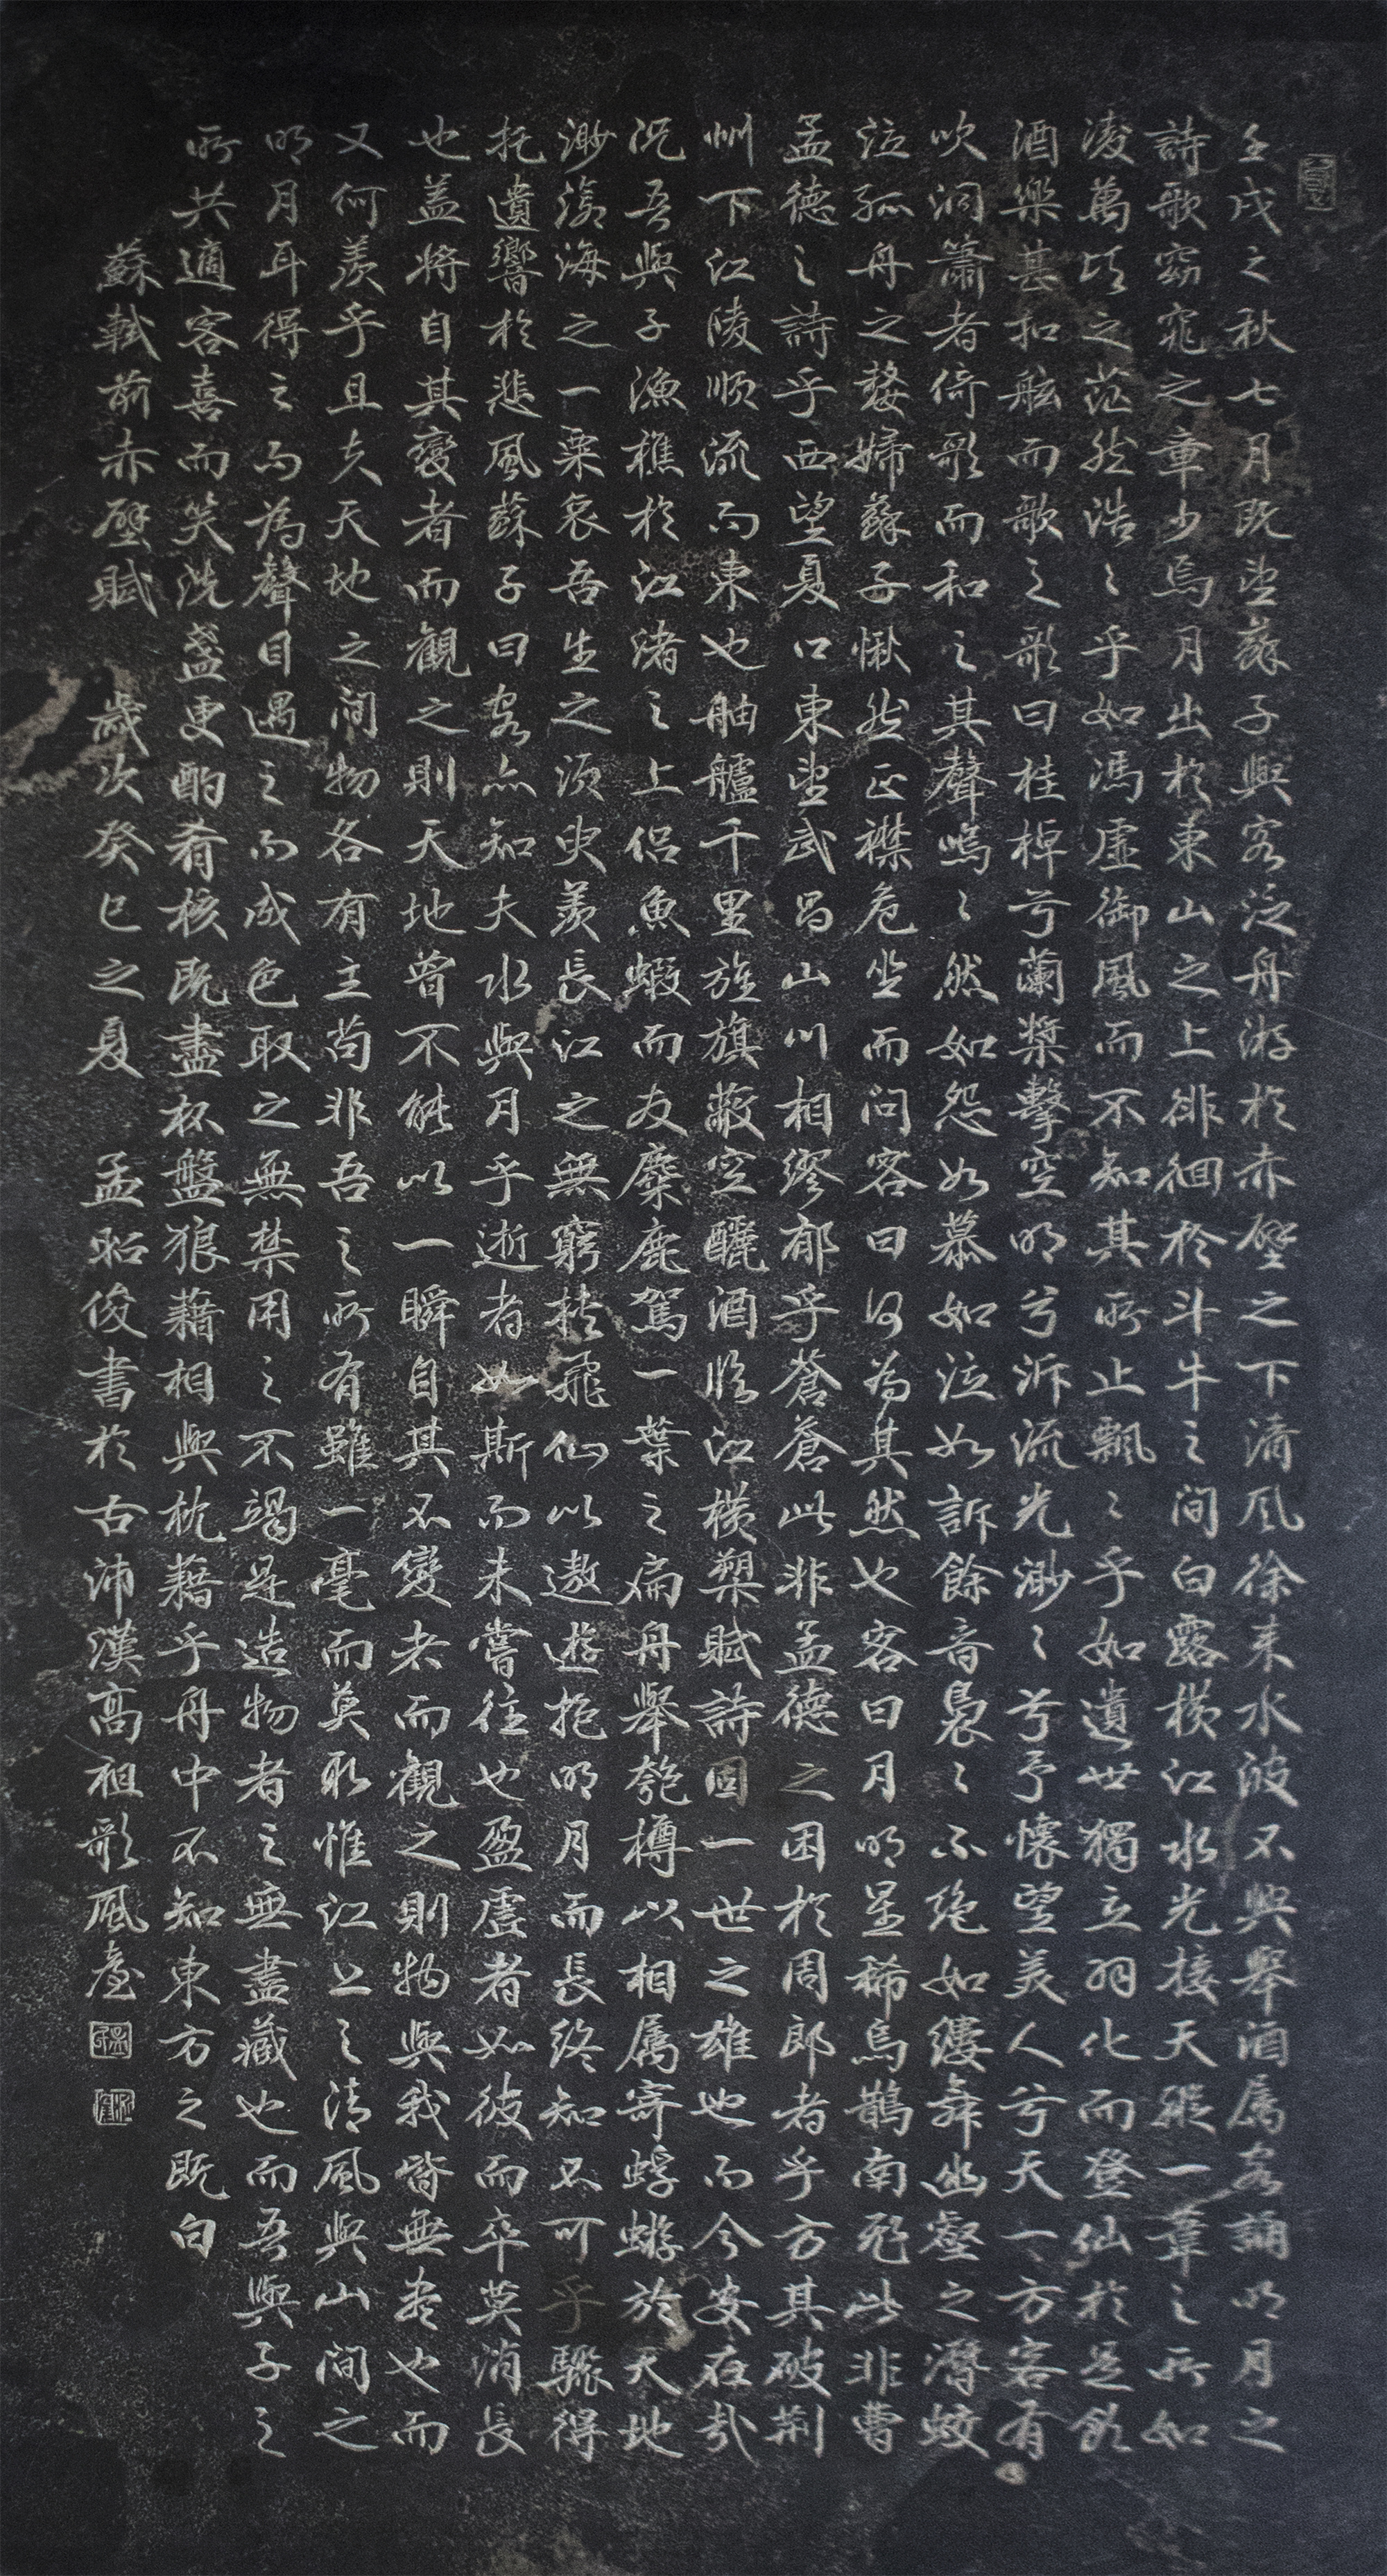 壬戌之秋七月既望蘇子與客泛舟游於赤壁之下清風徐来水波不興舉酒属客誦明月之
詩歌窈窕之章少焉月出於東山之上徘徊於斗牛之间白露横江水光接天縱一葦之所如
凌萬頃之茫然浩〻乎如馮虛御風而不知其所止飄〻乎如遺世獨立羽化而登仙於是飲
酒樂甚扣舷而歌之歌曰桂棹兮蘭槳擊空明兮泝流光渺〻兮予懷望美人兮天一方客有
吹洞簫者倚歌而和之其聲嗚〻然如怨如慕如泣如訴餘音裊〻不绝如縷舞幽壑之潛蛟
泣孤舟之嫠婦蘇子愀然正襟危坐而问客曰何為其然也客曰月明星稀烏鵲南飛此非曹
孟德之詩乎西望夏口東望武昌山川相繆郁乎蒼蒼此非孟德之困於周郎者乎方其破荆
州下江陵顺流而東也舳艫千里旌旗蔽空釃酒临江横槊賦詩固一世之雄也而今安在哉
况吾與子漁樵於江渚之上侣魚蝦而友麋鹿駕一葉之扁舟舉匏樽以相属寄蜉蝣於天地
渺滄海之一粟哀吾生之须臾羡長江之無窮挾飛仙以遨遊抱明月而長终知不可乎驟得
托遺響於悲風蘇子曰客亦知夫水與月乎逝者如斯而未嘗往也盈虛者如彼而卒莫消長
也盖将自其變者而觀之則天地曾不能以一瞬自其不變者而觀之則物與我皆無盡也而
又何羡乎且夫天地之间物各有主苟非吾之所有雖一毫而莫取惟江上之清風與山间之
明月耳得之而為聲目遇之而成色取之無禁用之不竭是造物者之無盡藏也而吾與子之
所共適客喜而笑洗盞更酌肴核既盡杯盤狼藉相與枕藉乎舟中不知東方之既白
蘇軾前赤壁賦 歲次癸巳之夏 孟昭俊書於古沛漢高祖歌風臺